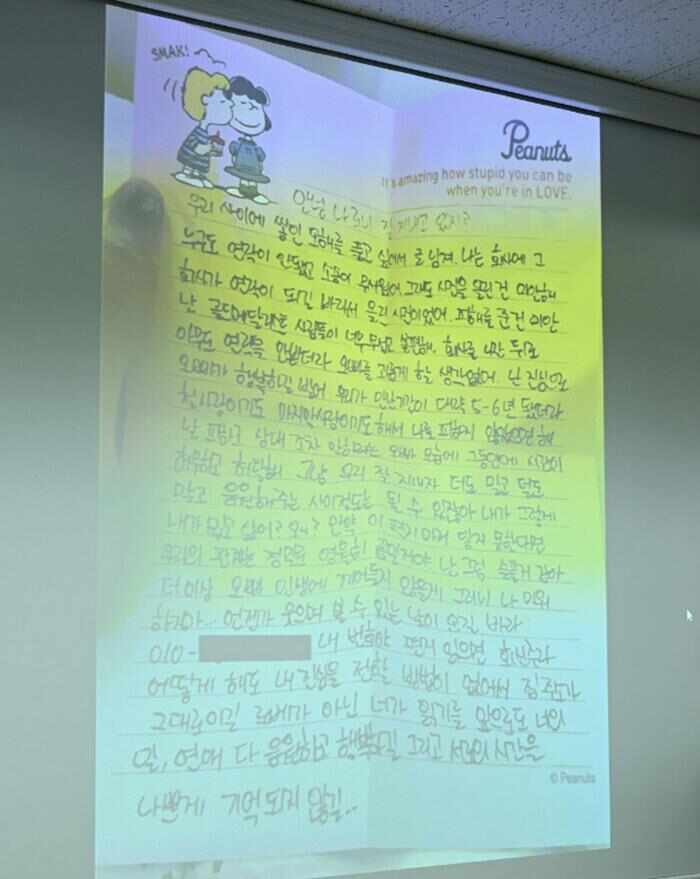 SMAK!
Peanuts
It's amazing how stupid you can be
when you're in LOVE.
안녕 나 잘 지내고 있지?
우리 사이에 쌓인 오해를 풀고 싶어서 글 남겨. 나는 회사에 그
누구도 연락이 안됐고 소송이 무서웠어 그래도 사진을 올린건 미안해
회사가 연락이 되길 바래서 올린 사진이었어. 피해를 준건 미안
난 골드메달리스트 사람들이 너무 무섭고 불편해. 회사를 나간 뒤로
아무도 연락을 안받더라 오빠를 곤란하게 할 생각없어 난 진심으로
오빠가 행복하길 빌어 우리가 만난기간이 대략 5-6년 됐더라
첫사랑이기도 마지막사랑이기도 해서 나를 피하지 않았으면 해
날 피하고 상대 조차 안하려는 오빠 모습에 그동안에 시간이
허무하고 허탈해 그냥 우리 잘 지내자 더도 말고 덜도
말고 응원해주는 사이정도는 될 수 있잖아 내가 그렇게
내가 밉고 싫어? 왜? 만약 이 편지에도 답지 못한다면
우리의 관계는 정말로 영원히 끝일거야 난 그럼 슬플거 같아
더이상 오빠 인생에 끼어들지 않을게 그러니 나 미워
하지마.. 언젠가 웃으며 볼 수 있는 날이 오길 바라
010- 내 번호야 편지 읽으면 회신줘라
어떻게 해도 내 진심을 전할 방법이 없어서 집주소가
그대로이길 로베가 아닌 너가 읽기를 앞으로도 너의
일, 연애 다 응원하고 행복하길 그리고 서로의 시간을
나쁘게 기억되지 않길..
© Peanuts